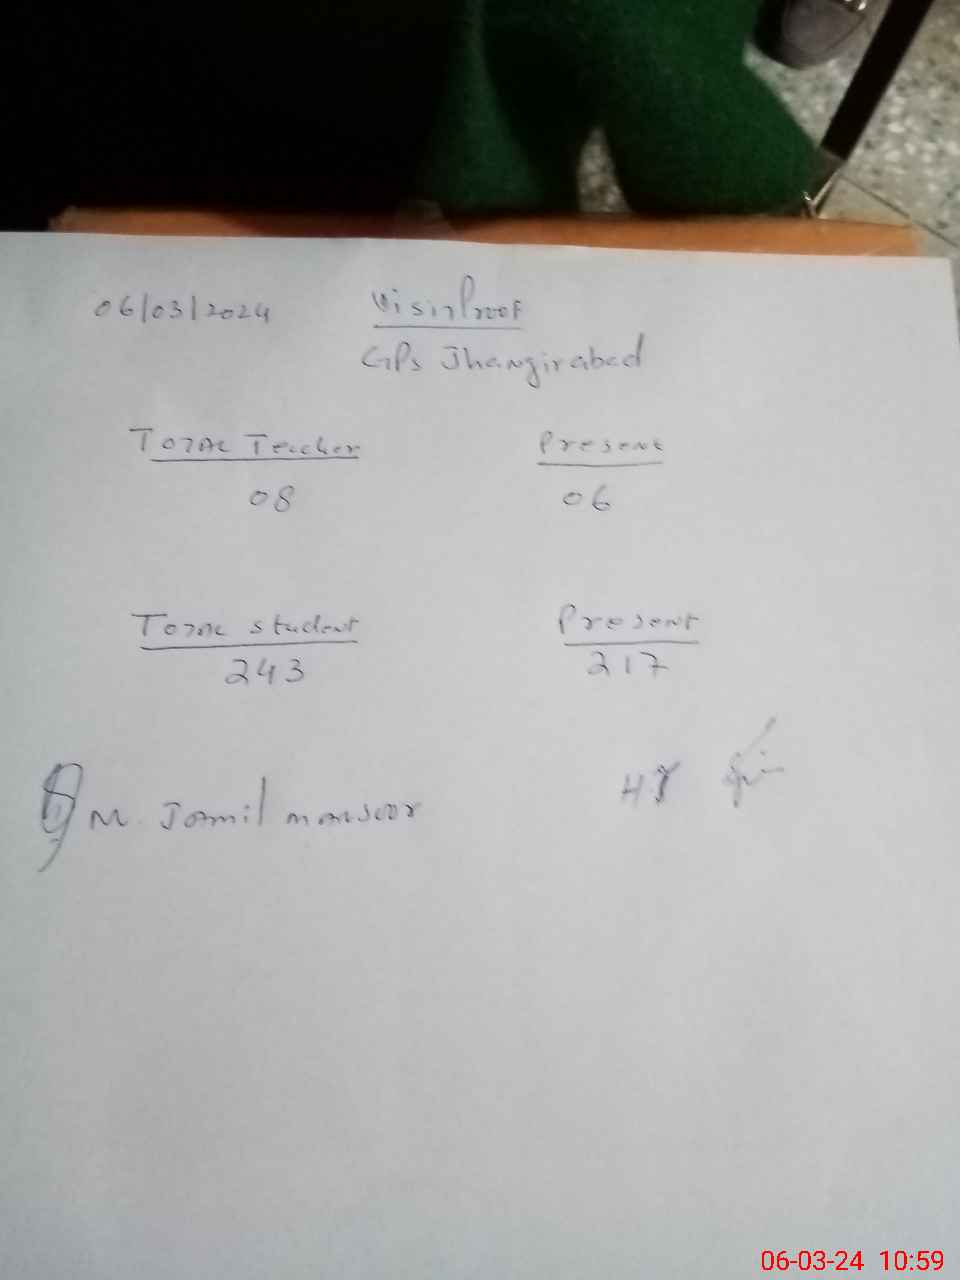 06/03/2024 Visit Proof
GPS Jhangirabad
Total Teacher Present
08 06
Total student Present
243 217
M. Jamil mansoor
06-03-24 10:59